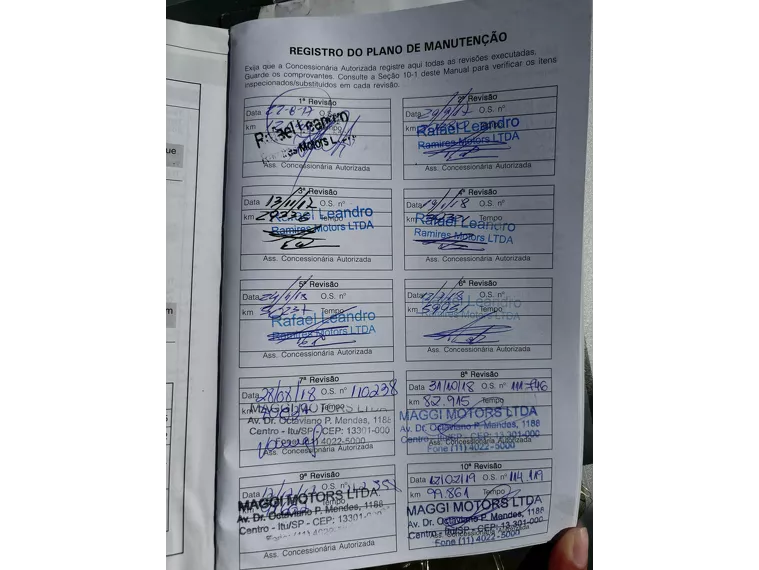 ue
m
REGISTRO DO PLANO DE MANUTENÇÃO
Exija que a Concessionária Autorizada registre aqui todas as revisões executadas.
Guarde os comprovantes. Consulte a Seção 10-1 deste Manual para verificar os itens
inspecionados/substituídos em cada revisão.
1ª Revisão
Data
km Tempo
Rafael Leandro
Ramires Motors LTDA
Ass. Concessionária Autorizada
2ª Revisão
Data O.S. nº
km
Rafael Leandro
Ramires Motors LTDA
Ass. Concessionária Autorizada
3ª Revisão
Data 13/11/17 O.S. nº
km Tempo
Rafael Leandro
Ramires Motors LTDA
Ass. Concessionária Autorizada
4ª Revisão
Data O.S. nº
km Tempo
Rafael Leandro
Ramires Motors LTDA
Ass. Concessionária Autorizada
5ª Revisão
Data O.S. nº
km Tempo
Rafael Leandro
Ramires Motors LTDA
Ass. Concessionária Autorizada
6ª Revisão
Data O.S. nº
km Tempo
Rafael Leandro
Ramires Motors LTDA
Ass. Concessionária Autorizada
7ª Revisão
Data 28/08/18 O.S. nº 110238
km Tempo
MAGGI MOTORS LTDA
Av. Dr. Octaviano P. Mendes, 1188
Centro - Itu/SP - CEP: 13301-000
Fone (11) 4022-5000
Ass. Concessionária Autorizada
8ª Revisão
Data 31/10/18 O.S. nº 111746
km 82.915 Tempo
MAGGI MOTORS LTDA
Av. Dr. Octaviano P. Mendes, 1188
Centro - Itu/SP - CEP: 13.301-000
Fone (11) 4022-5000
Ass. Concessionária Autorizada
9ª Revisão
Data
km
MAGGI MOTORS LTDA
Av. Dr. Octaviano P. Mendes, 1188
Centro - Itu/SP - CEP: 13301-000
Ass. Concessionária Autorizada
10ª Revisão
Data 12/02/19 O.S. nº 114.119
km 99.861 Tempo
MAGGI MOTORS LTDA
Av. Dr. Octaviano P. Mendes, 1188
Centro - Itu/SP - CEP: 13.301-000
Fone (11) 4022-5000
Ass. Concessionária Autorizada